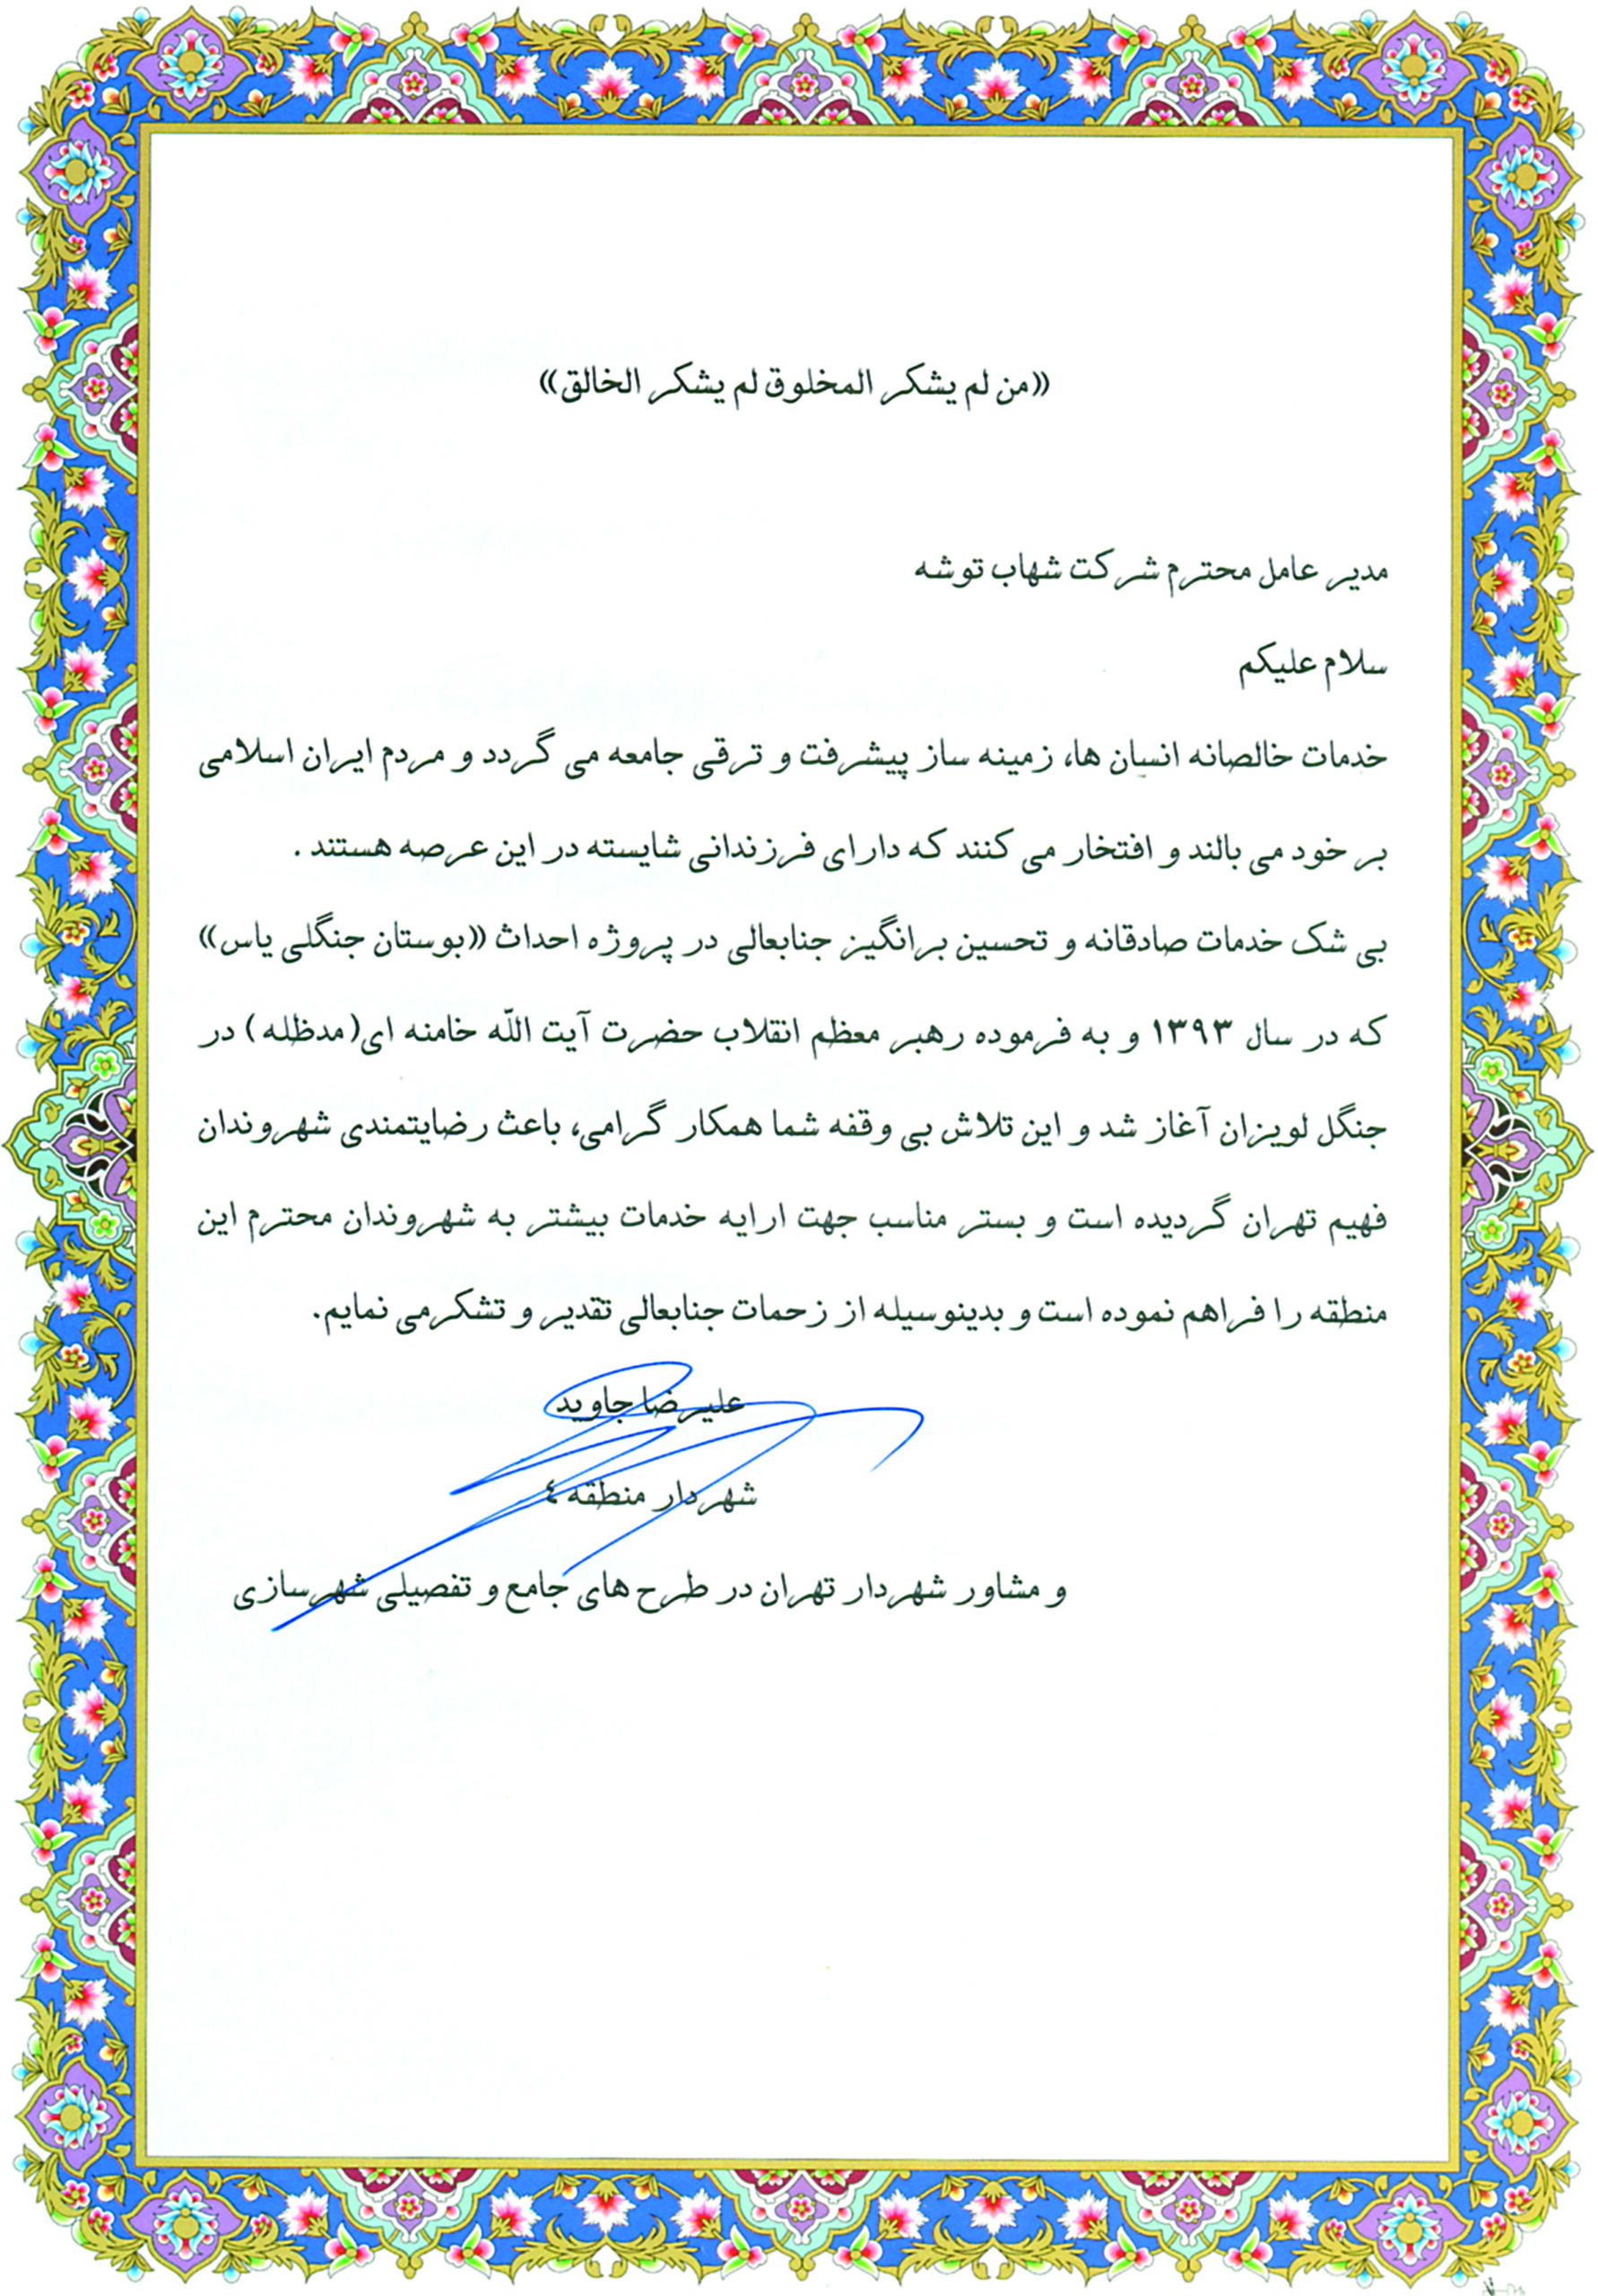 «من لم یشکر المخلوق لم یشکر الخالق»
مدیر عامل محترم شرکت شهاب توشه
سلام علیکم
خدمات خالصانه انسان ها، زمینه ساز پیشرفت و ترقی جامعه می گردد و مردم ایران اسلامی
بر خود می بالند و افتخار می کنند که دارای فرزندانی شایسته در این عرصه هستند .
بی شک خدمات صادقانه و تحسین برانگیز جنابعالی در پروژه احداث «بوستان جنگلی یاس»
که در سال ۱۳۹۳ و به فرموده رهبر معظم انقلاب حضرت آیت الله خامنه ای(مدظله) در
جنگل لویزان آغاز شد و این تلاش بی وقفه شما همکار گرامی، باعث رضایتمندی شهروندان
فهیم تهران گردیده است و بستر مناسب جهت ارایه خدمات بیشتر به شهروندان محترم این
منطقه را فراهم نموده است و بدینوسیله از زحمات جنابعالی تقدیر و تشکرمی نمایم.
علیرضا جاوید
شهردار منطقه ٤
و مشاور شهردار تهران در طرح های جامع و تفصیلی شهرسازی